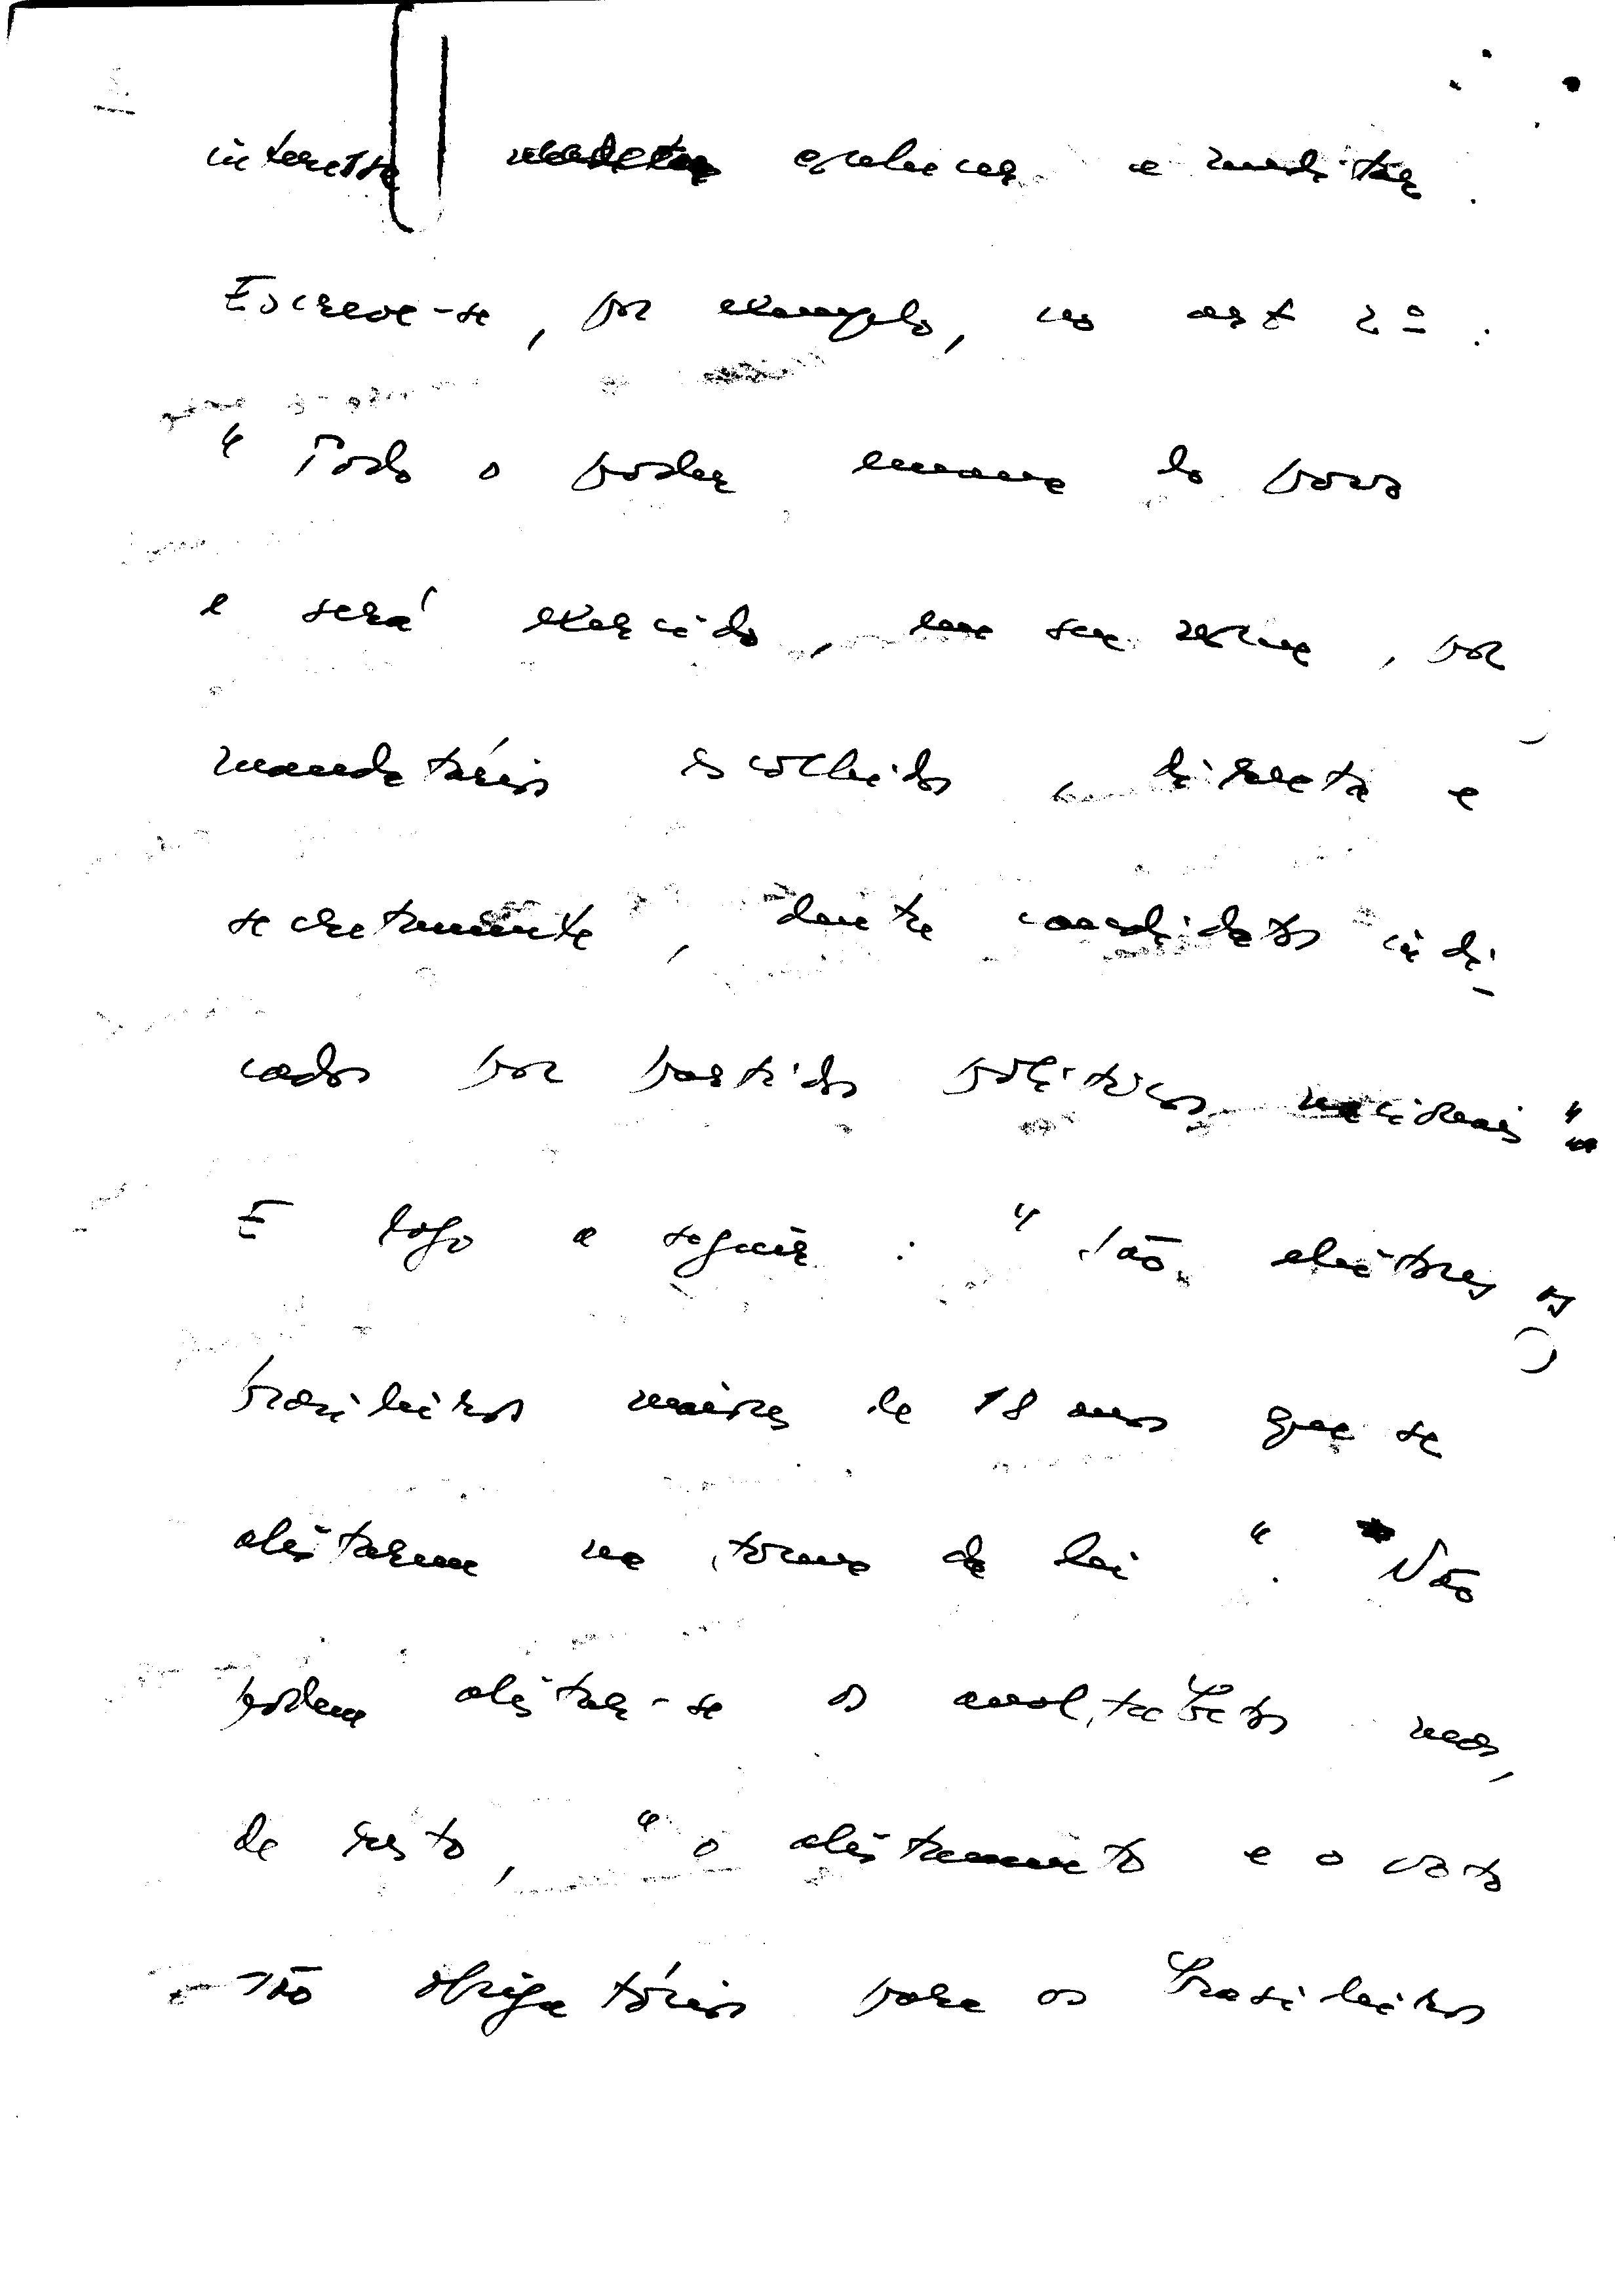 interessa esclarecer e meditar.
Escreve-se, por exemplo, no art 2º:
"Todo o poder emana do povo
e será exercido, em seu nome, por
mandatários escolhidos, direta e
secretamente, dentre candidatos indi-
cados por partidos políticos nacionais".
E logo a seguir: "São eleitores os
brasileiros maiores de 18 anos que se
alistarem na forma da lei". Não
podem alistar-se os analfabetos mas,
de resto, "o alistamento e o voto
são obrigatórios para os brasileiros